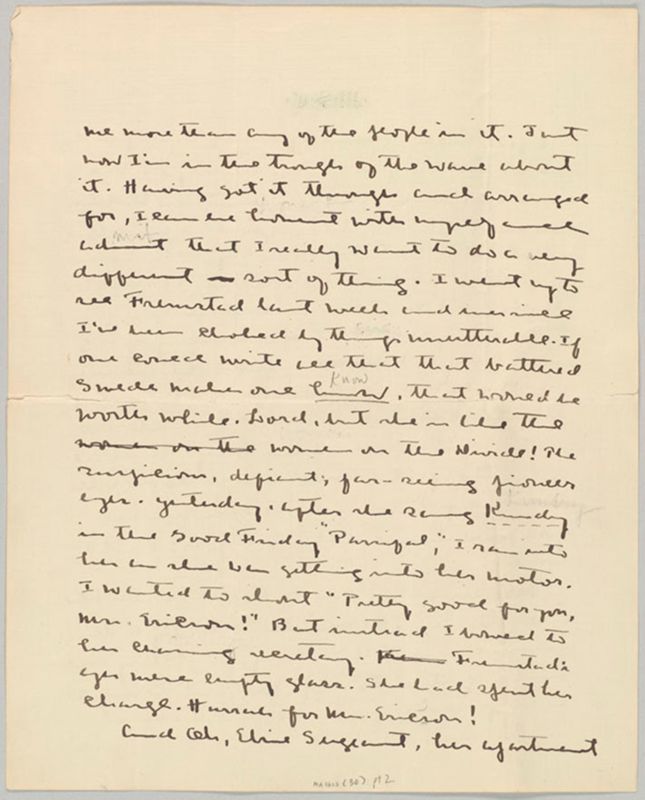 me more than any of the people in it. Just
now I'm in the trough of the wave about
it. Having got it through and arranged
for, I can be honest with myself and
admit that I really want to do a very
mit
different sort of thing. I went up to
see Fremstad last week and ever since
I've been choked by things unutterable. If
one could write all that that battered
Swede makes one know, that would be
Know
worth while. Lord, but she is like the
women on the women on the Divide! The
suspicious, defiant, far-seeing pioneer
eyes. Yesterday, after she sang Kundry
Kundry
in the Good Friday "Parsifal", I ran into
her as she was getting into her motor.
I wanted to shout "Pretty good for you,
Mrs. Ericson!" But instead I bowed to
her charming secretary. Fremstad's
eyes were empty glass. She had spent her
charge. Hurrah for Mrs. Ericson!
And Oh, Elsie Sergeant, her apartment
MA 1602 (30) pt 2